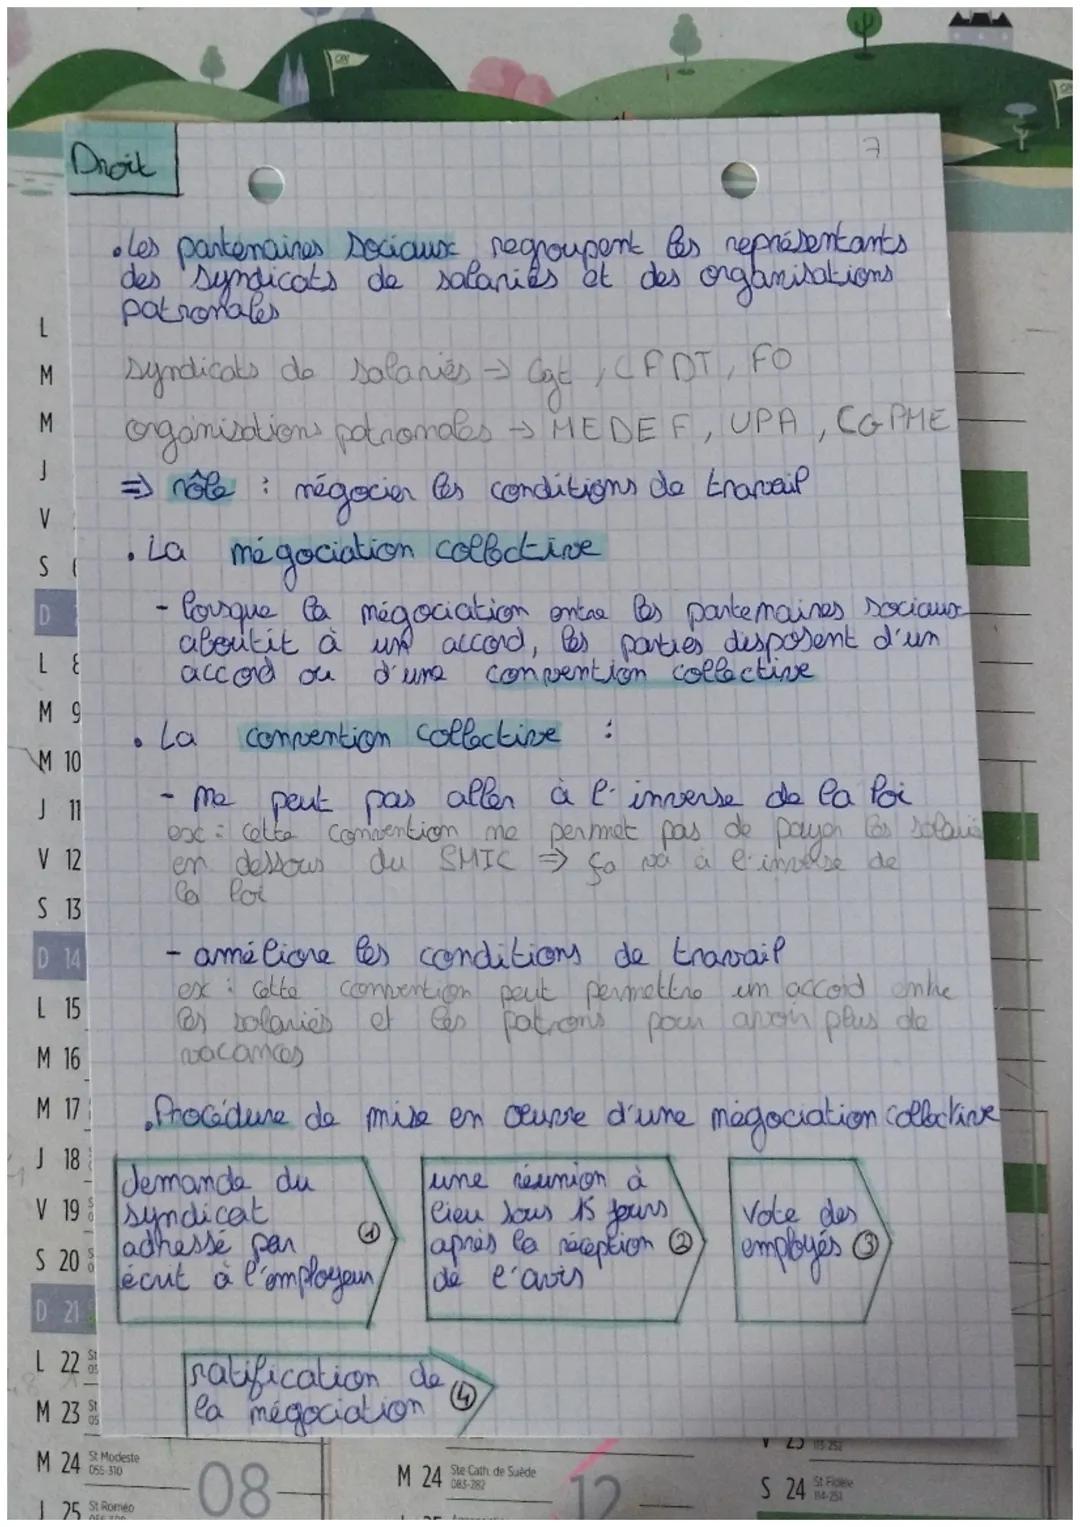 Droit
7
• Les partenaires sociaux regroupent les représentants
des syndicats de salariés et des organisations
patronales
syndicats de salariés → Cgt, CFDT, FO
organisations patronales → MEDEF, UPA, CGPME
⇒ rôle : négocier les conditions de travail
• La négociation collective
- lorsque la négociation entre les partenaires sociaux
aboutit à un accord, les parties disposent d'un
accord ou d'une convention collective
• La convention collective :
- ne peut pas aller à l'inverse de la loi
ex : cette convention ne permet pas de payer les salariés
en dessous du SMIC ⇒ ça va à l'inverse de
la loi
- améliore les conditions de travail
ex : cette convention peut permettre un accord entre
les salariés et les patrons pour avoir plus de
vacances
• Procédure de mise en œuvre d'une négociation collective
demande du
syndicat
adressé par
écrit à l'employeur
①
une réunion à
lieu sous 15 jours
après la réception ②
de l'avis
Vote des
employés ③
ratification de
la négociation ④
L
M
M
J
V
S
D
L 8
M 9
M 10
J 11
V 12
S 13
D 14
L 15
M 16
M 17
J 18
V 19
S 20
D 21
L 22
M 23
M 24 St Modeste
055-310
J 25 St Roméo
08
M 24 Ste Cath. de Suède
083-282
12
S 24 St Fidèle
114-251